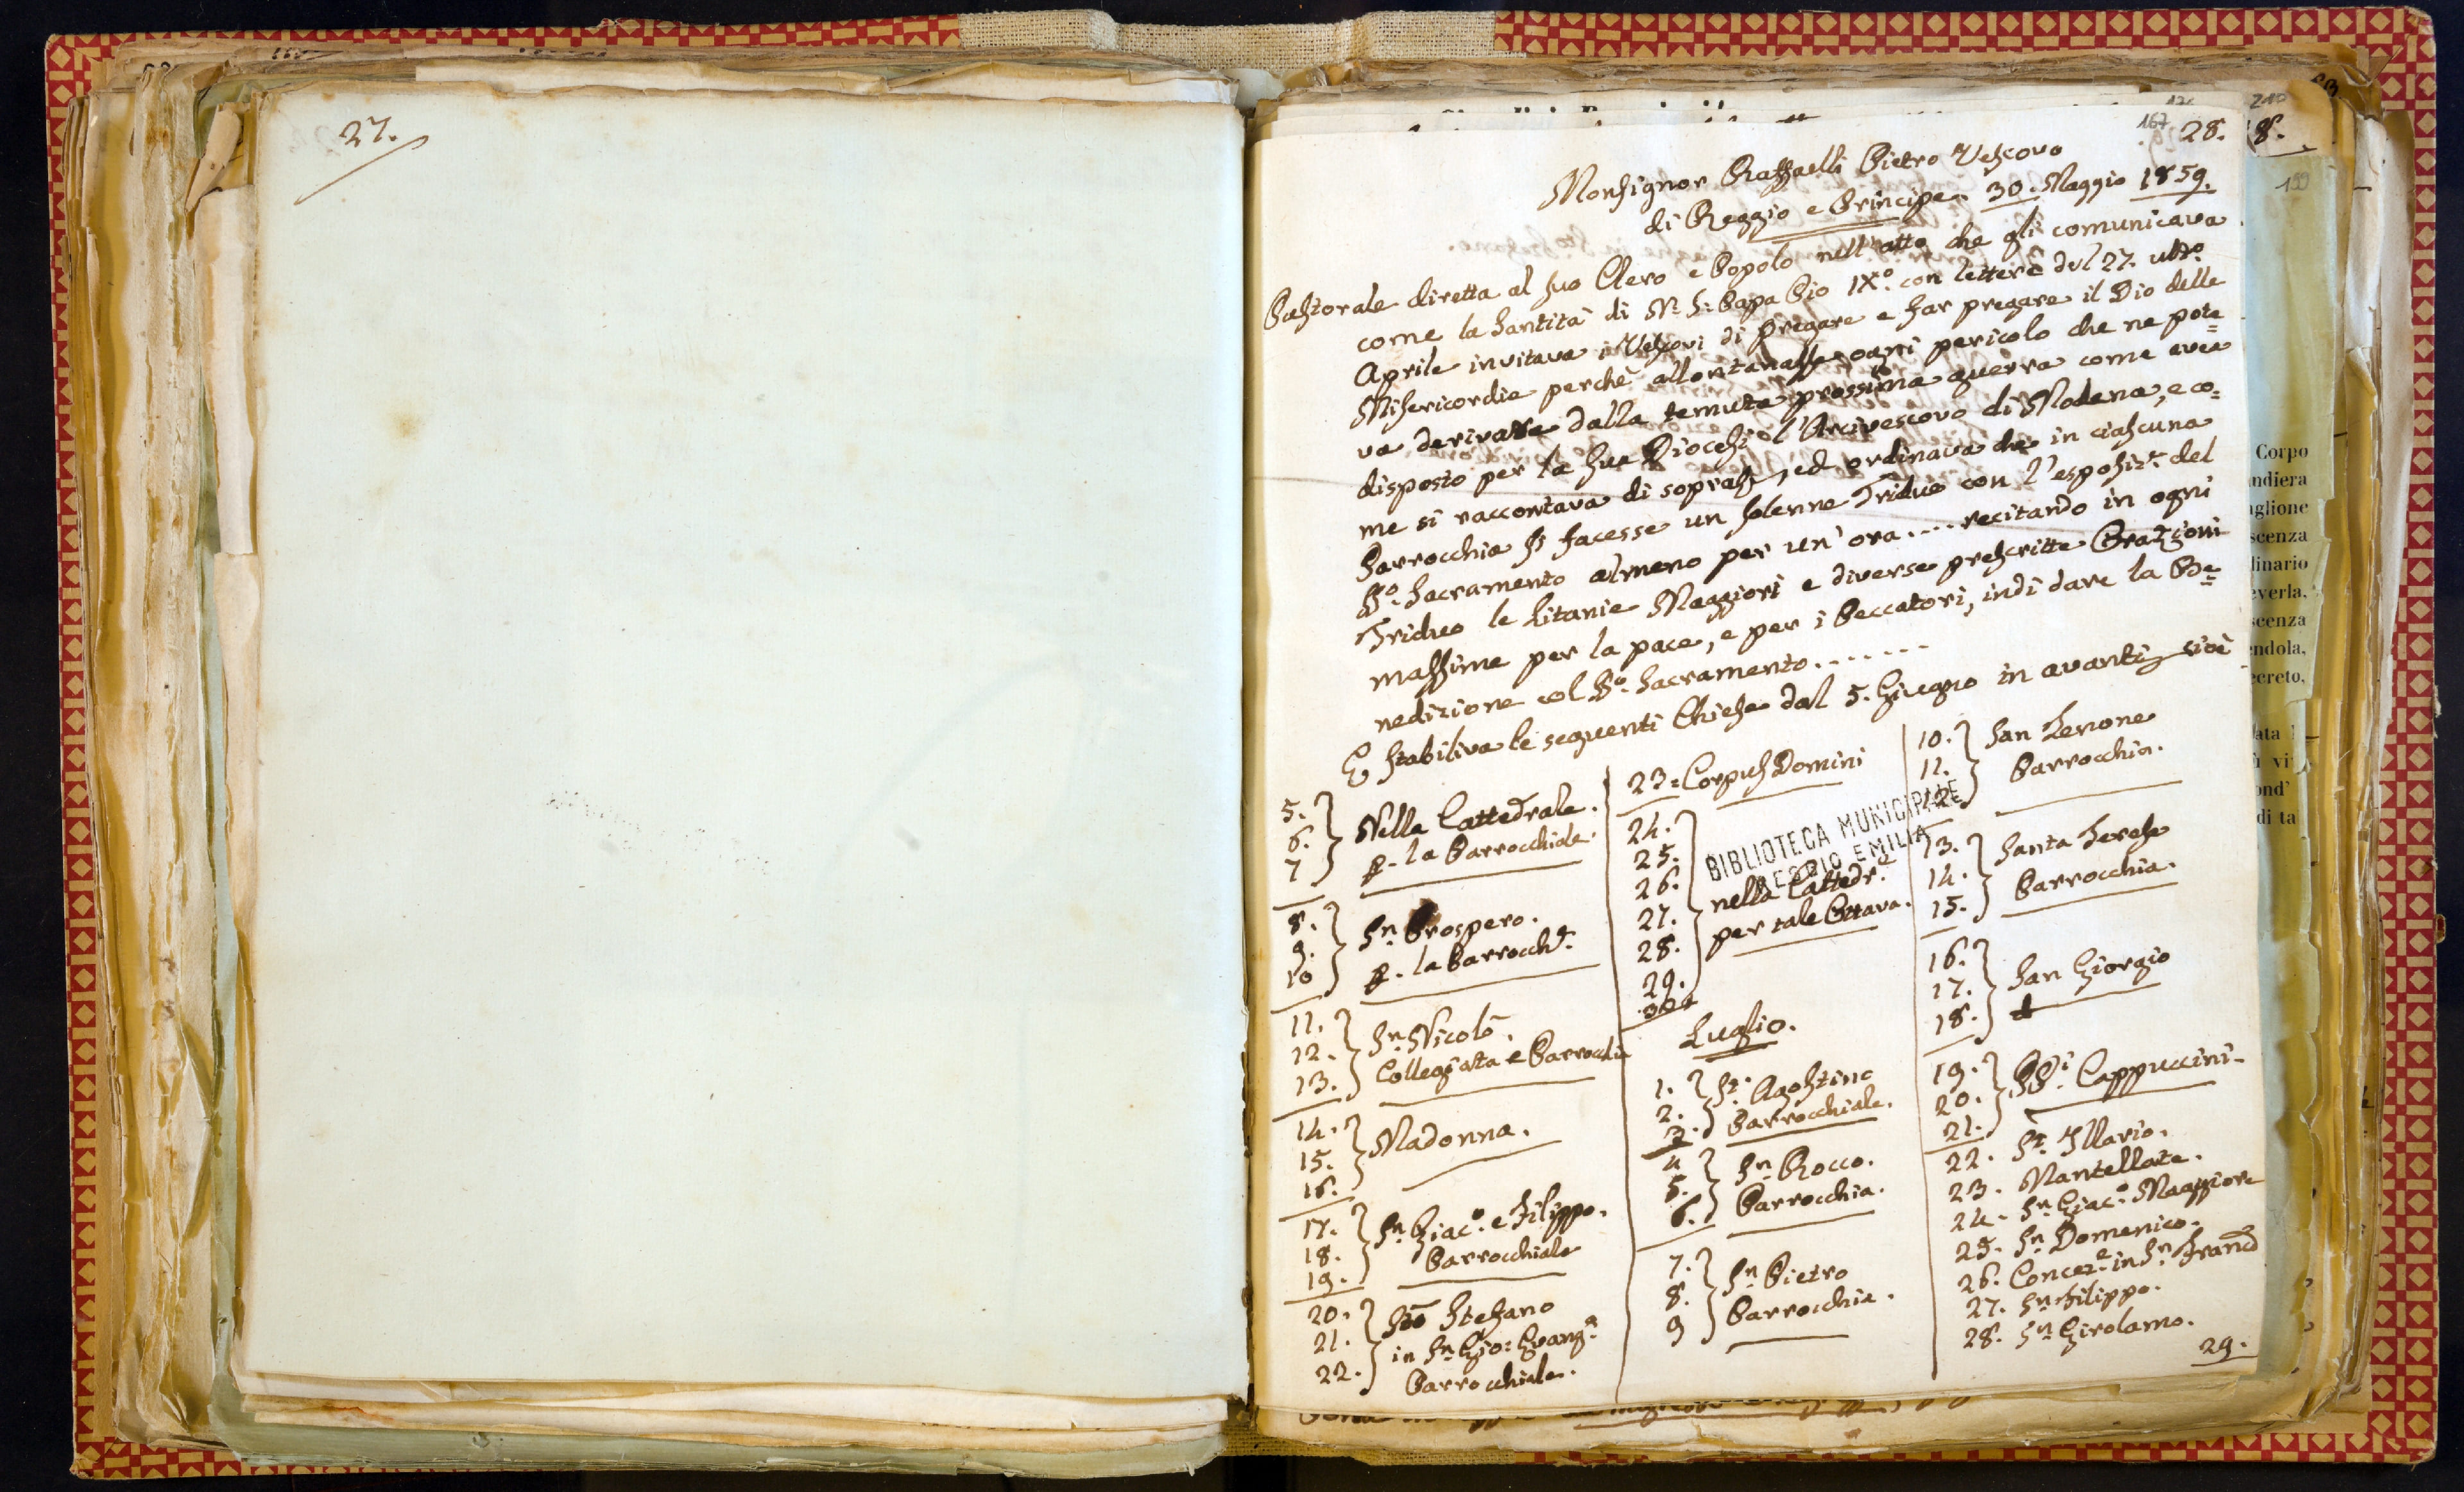 27.
167
28.
210
8.
199
Monsignor Raffaelli Pietro Vescovo
di Reggio e Principe. 30. Maggio 1859.
Pastorale diretta al suo Clero e Popolo nell'atto che gli comunicava
come la Santità di N. S. Papa Pio IX.º con lettera del 27. ult.º
Aprile invitava i Vescovi di pregare e far pregare il Dio delle
Misericordie perchè allontanasse ogni pericolo che ne pote=
va derivare dalla temuta prossima guerra come avea
disposto per la sua Diocesi l'Arcivescovo di Modena, e co=
me si raccontava di sopra, ed ordinava che in ciascuna
Parrocchia si facesse un solenne Triduo con l'esposiz.e del
SS.º Sacramento almeno per un'ora.... recitando in ogni
Triduo le Litanie Maggiori e diverse prescritte Orazioni
massime per la pace, e per i Peccatori, indi dare la Be=
nedizione col SS.º Sacramento.......
E stabiliva le seguenti Chiese dal 5. Giugno in avanti cioè
5.
6.
7
Nella Cattedrale.
p. la Parrocchiale.
8.
9.
10
S.n Prospero.
p. la Parrocch.e
11.
12.
13.
S.n Nicolò.
Collegiata e Parrocchia
14.
15.
16.
Madonna.
17.
18.
19.
S.n Giac.º e Filippo.
Parrocchiale
20.
21.
22.
Sto Stefano
in S.n Gio: Evang.a
Parrocchiale.
23=Corpus Domini
24.
25.
26.
27.
28.
29.
30.
nella Cattedr.e
per tale Ottava.
BIBLIOTECA MUNICIPALE
REGGIO EMILIA
Luglio.
1.
2.
3.
St. Agostino
Parrocchiale.
4
5.
6.
S.n Rocco.
Parrocchia.
7.
8.
9
S.n Pietro
Parrocchia.
10.
11.
12.
San Zenone
Parrocchia.
13.
14.
15.
Santa Teresa
Parrocchia.
16.
17.
18.
San Giorgio
19.
20.
21.
PP.i Cappuccini
22. St. Illario.
23. Mantellate.
24. S.n Giac.º Maggiore
25. S.n Domenico.
26. Concez.e in S.n Franc.º
27. S.n Filippo.
28. S.n Girolamo.
29.
Corpo
ndiera
glione
scenza
linario
everla,
scenza
endola,
ecreto,
ata
vi
ond'
di ta